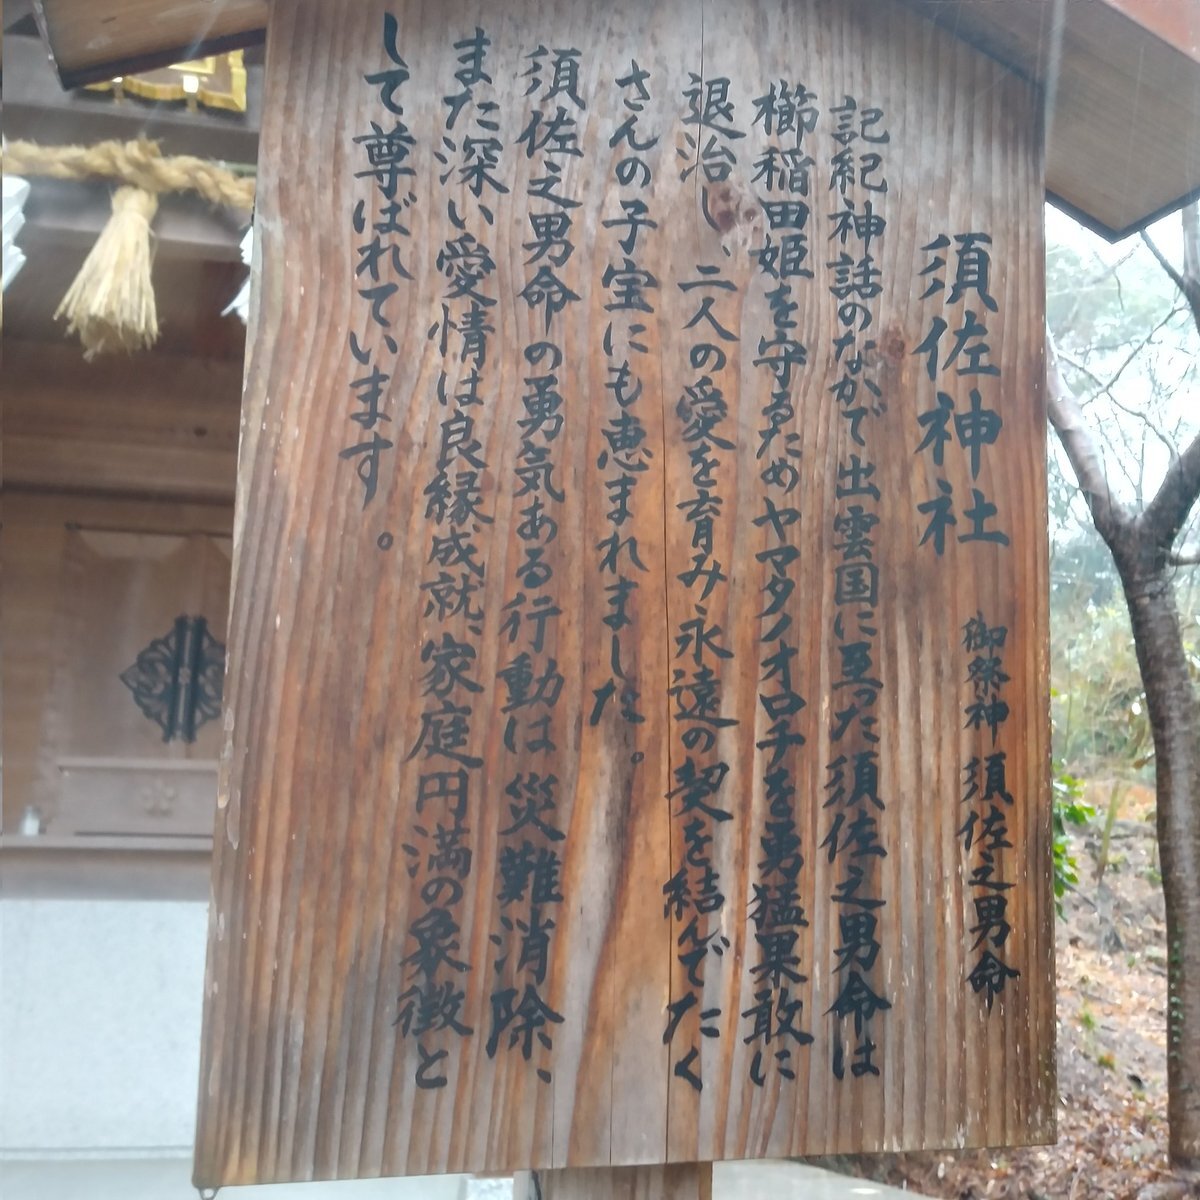 須佐神社
御祭神 須佐之男命
記紀神話のなかで出雲国に至った須佐之男命は
櫛稲田姫を守るためヤマタノオロチを勇猛果敢に
退治し、二人の愛を育み永遠の契を結んでたく
さんの子宝にも恵まれました。
須佐之男命の勇気ある行動は災難消除、
また深い愛情は良縁成就、家庭円満の象徴と
して尊ばれています。